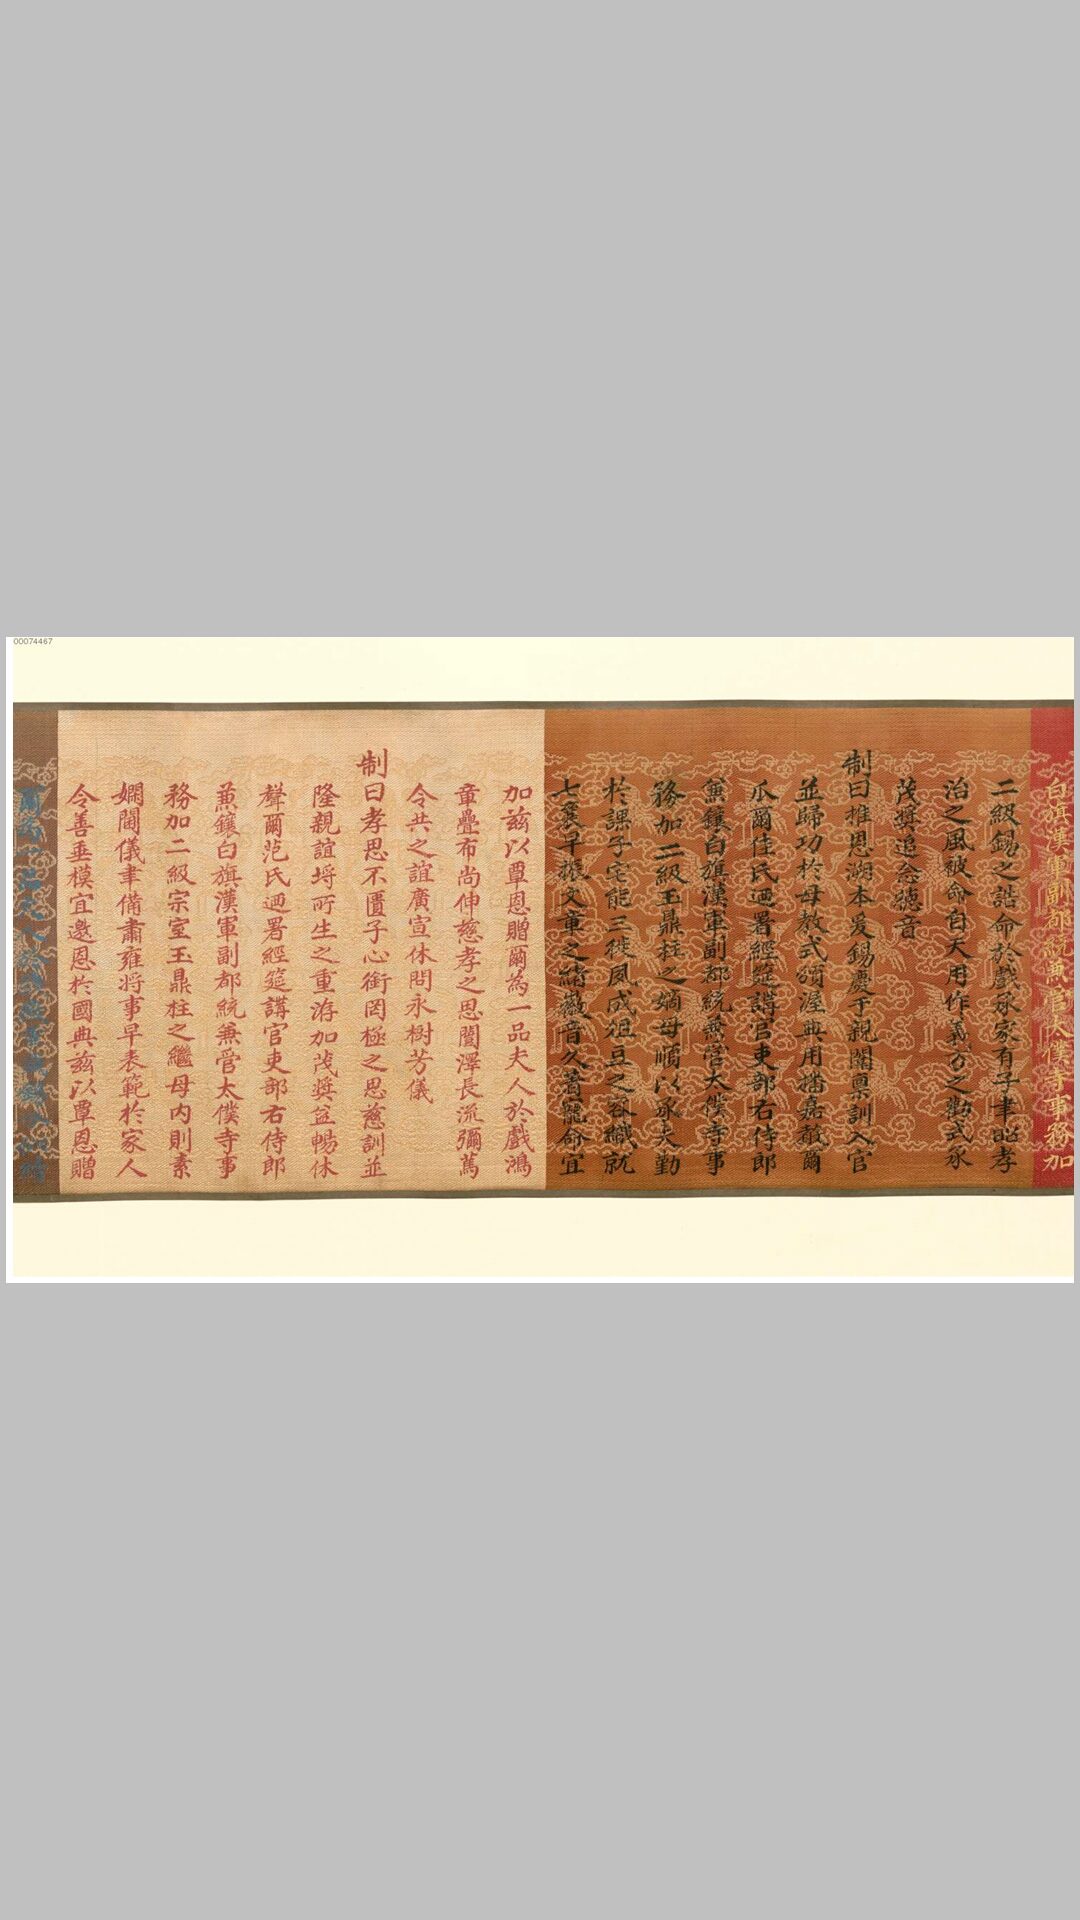 00074467
白旗漢軍副都統兼管太僕寺事務加
二級錫之誥命於戲承家有子聿昭孝
治之風被命自天用作義方之勸式承
茂獎追念德音
制曰推恩溯本爰錫慶于親闈稟訓入官
並歸功於母教式頒渥典用播嘉聲爾
瓜爾佳氏迺署經筵講官吏部右侍郎
兼鑲白旗漢軍副都統兼管太僕寺事
務加二級玉鼎柱之嫡母順以承夫勤
於課子宅能三徙夙成俎豆之容織就
七襄早振文章之緒徽音久著寵命宜
加茲以覃恩贈爾為一品夫人於戲鴻
章疊布尚伸慈孝之思闓澤長流彌篤
令共之誼廣宣休問永樹芳儀
制曰孝思不匱子心銜罔極之恩慈訓並
隆親誼埒所生之重洊加茂獎益暢休
聲爾范氏迺署經筵講官吏部右侍郎
兼鑲白旗漢軍副都統兼管太僕寺事
務加二級宗室玉鼎柱之繼母內則素
嫻閫儀聿備肅雍將事早表範於家人
令善垂模宜邀恩於國典茲以覃恩贈